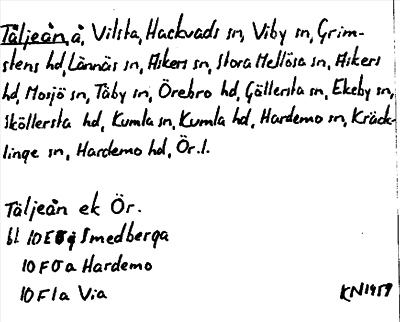 Täljeån, å, Vilsta, Hackvads sn, Viby sn, Grim-
stens hd, Lännäs sn, Askers sn, Stora Mellösa sn, Askers
hd, Mosjö sn, Täby sn, Örebro hd, Gällersta sn, Ekeby sn,
Sköllersta hd, Kumla sn, Kumla hd, Hardemo sn, Kräck-
linge sn, Hardemo hd, Ör. l.
Täljeån ek Ör.
bl 10E Smedberga
10F0a Hardemo
10F1a Via
KN1959